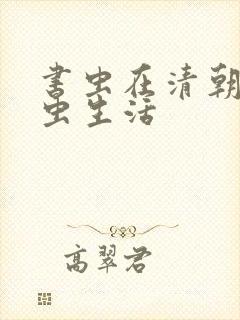 书虫在清朝
虫生活
高翠君